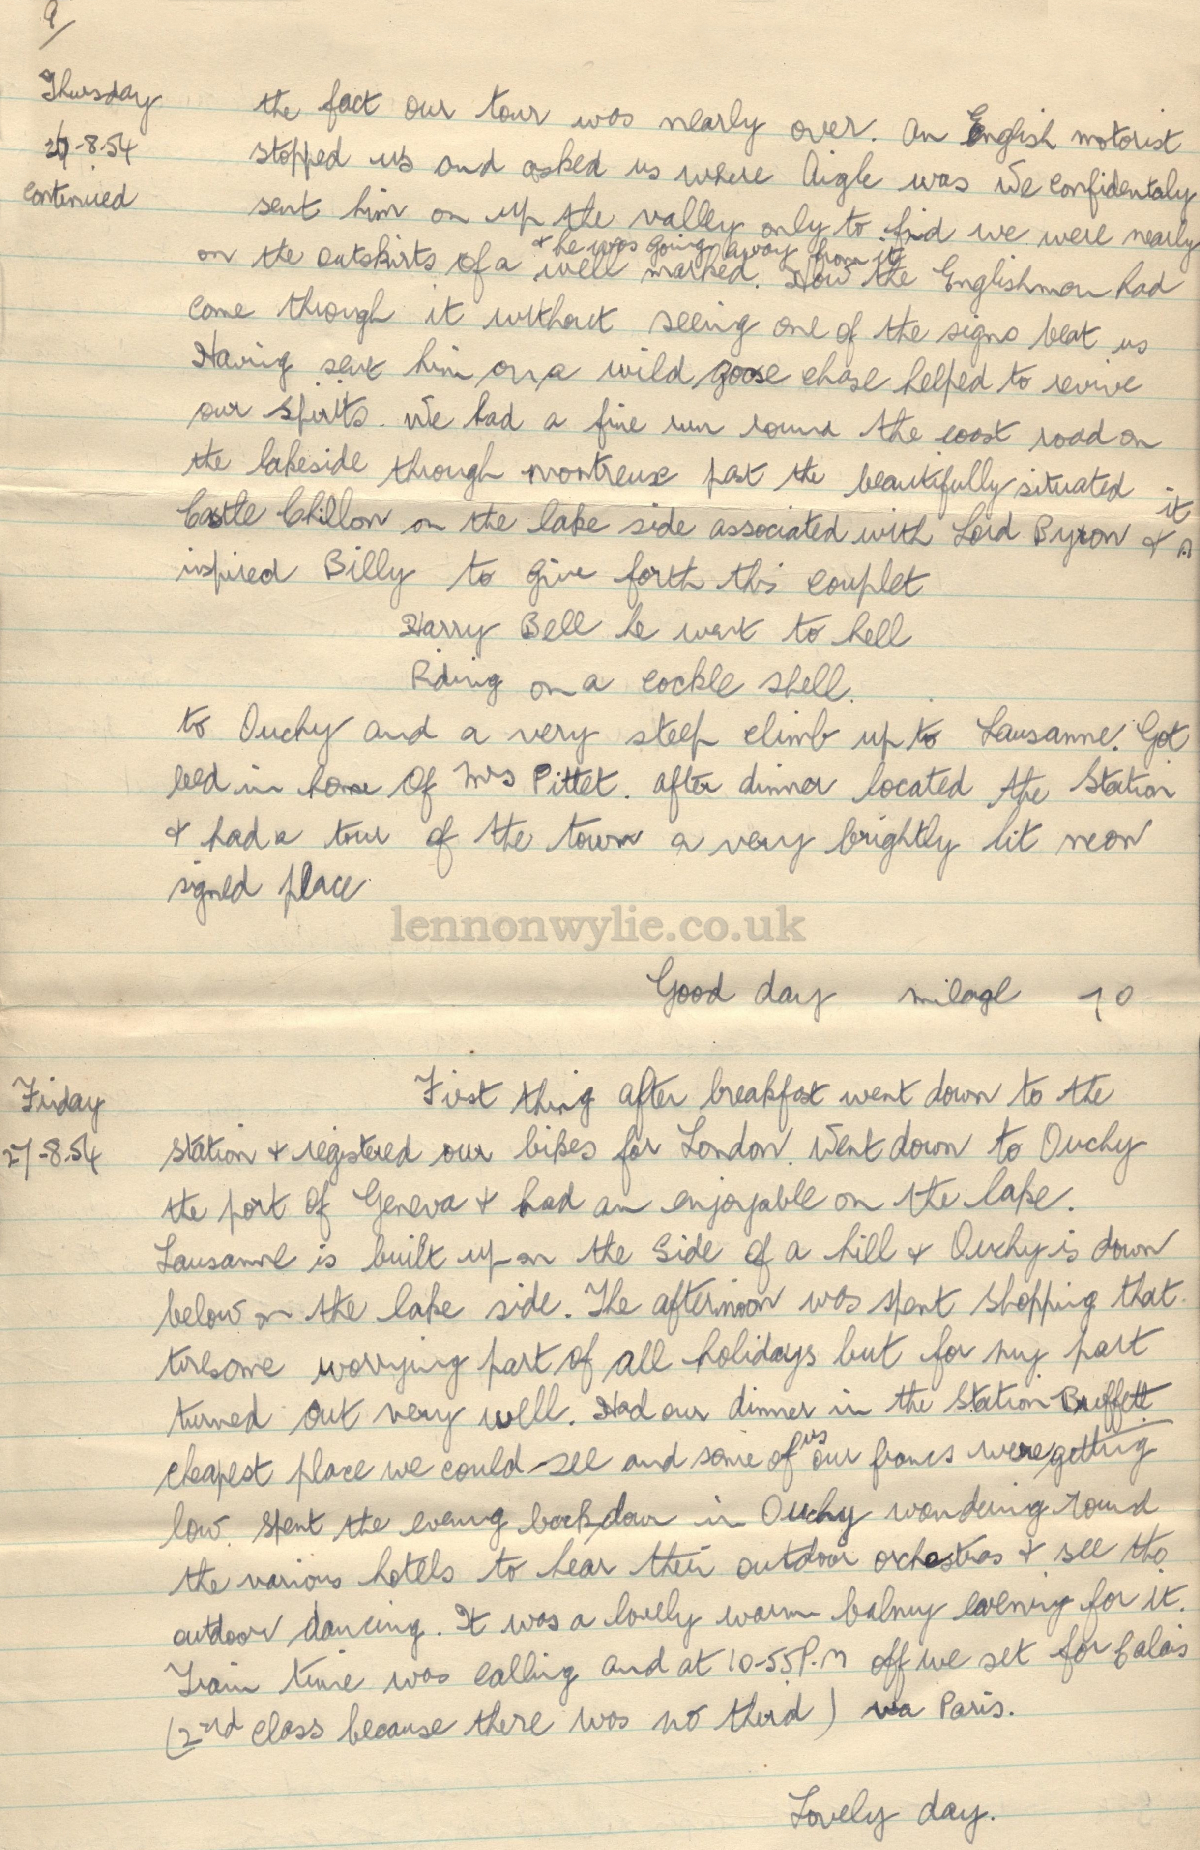 9/
Thursday
26-8-54
continued
the fact our tour was nearly over. An English motorist
stopped us and asked us where Aigle was We confidentaly
sent him on up the valley only to find we were nearly
& he was going away from it
on the outskirts of a well marked. How the Englishman had
come through it without seeing one of the signs beat us
Having sent him on a wild goose chase helped to revive
our spirits. We had a fine run round the coast road on
the lakeside through Montreux past the beautifully situated
Castle Chillon on the lake side associated with Lord Byron & it
inspired Billy to give forth this couplet
Harry Bell he went to hell
Riding on a cockle shell.
to Ouchy and a very steep climb up to Lausanne. Got
bed in home of Mrs Pittet. After dinner located the Station
& had a tour of the town a very brightly lit neon
signed place
lennonwylie.co.uk
Good day milage 70
Friday
27-8-54
First thing after breakfast went down to the
station & registered our bikes for London. Went down to Ouchy
the port of Geneva & had an enjoyable on the lake.
Lausanne is built up on the side of a hill & Ouchy is down
below on the lake side. The afternoon was spent shopping that
tiresome worrying part of all holidays but for my part
turned out very well. Had our dinner in the Station Buffett
cheapest place we could see and some of us our francs were getting
low. Spent the evening back down in Ouchy wandering round
the various hotels to hear their outdoor orchestras & see the
outdoor dancing. It was a lovely warm balmy evening for it.
Train time was calling and at 10-55 P.M off we set for Calais
(2nd class because there was no third) via Paris.
Lovely day.